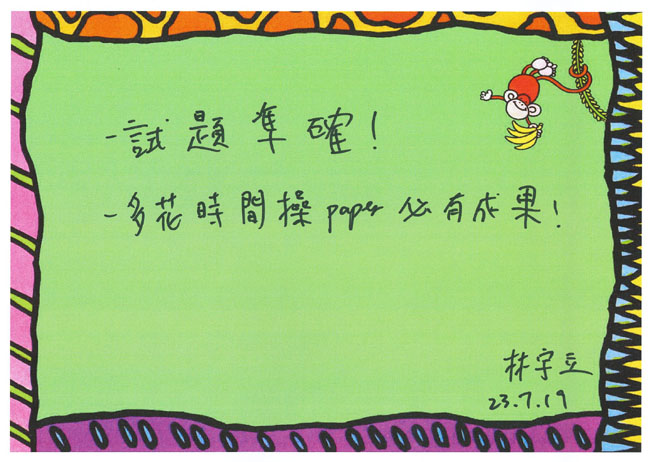 -試題準確!
-多花時間操paper必有成果!
林宇立
23.7.19